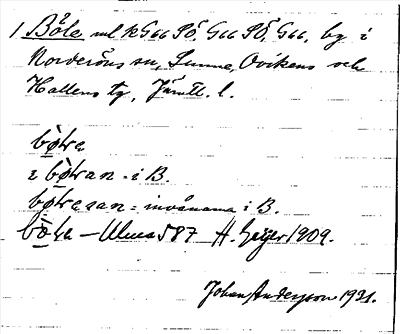 1 Böle ml RG66 PÖ, G66 PÖ, G66, by i
Norderöns sn, Sunne, Ovikens och
Hallens tg, Jämtl. l.
bøtra
i bøtran - i B.
bøtrasan = invånarna i B.
– Umea 587 H. Geijer 1909.
Johan Andersson 1931.